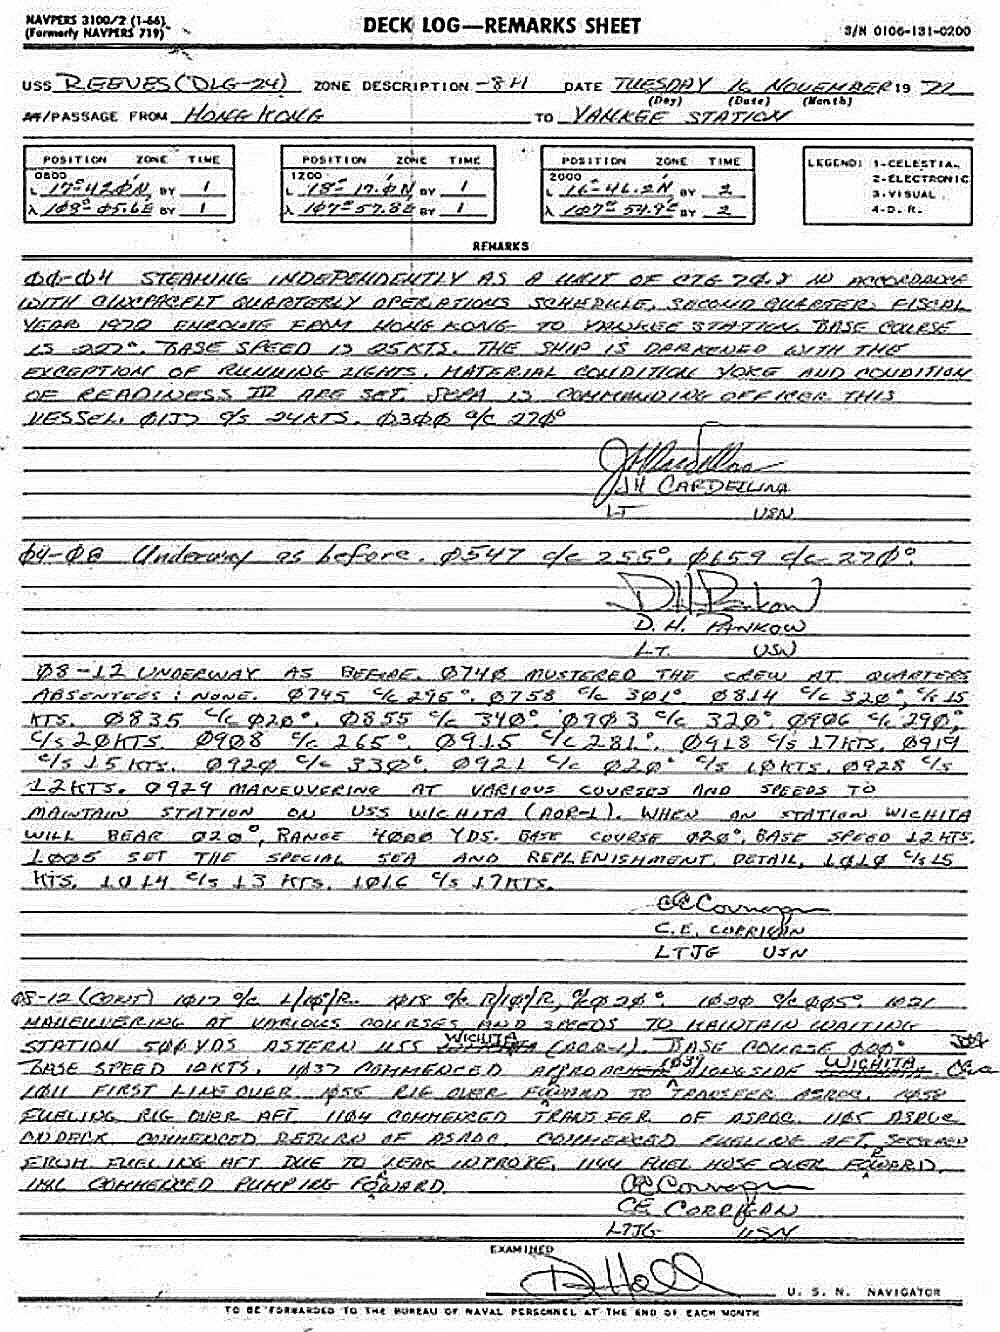 NAVPERS 3100/2 (1-66)
(Formerly NAVPERS 719)
DECK LOG—REMARKS SHEET
S/N 0106-131-0200
USS REEVES (DLG-24) ZONE DESCRIPTION -8H DATE TUESDAY 16 NOVEMBER 19
(Day) (Date) (Month)
AT/PASSAGE FROM HONG KONG TO YANKEE STATION
POSITION ZONE TIME
0800
L 17°-42.0N BY 1
λ 108°-05.6E BY 1
POSITION ZONE TIME
1200
L 18°-17.0N BY 1
λ 107°-57.8E BY 1
POSITION ZONE TIME
2000
L 16°-46.2N BY 2
λ 107°-54.9E BY 2
LEGEND: 1-CELESTIAL
2-ELECTRONIC
3-VISUAL
4-D. R.
REMARKS
00-04 STEAMING INDEPENDENTLY AS A UNIT OF CTG 70.8 IN ACCORDANCE
WITH CINCPACFLT QUARTERLY OPERATIONS SCHEDULE, SECOND QUARTER FISCAL
YEAR 1972 ENROUTE FROM HONG KONG TO YANKEE STATION. BASE COURSE
IS 227°. BASE SPEED IS 25KTS. THE SHIP IS DARKENED WITH THE
EXCEPTION OF RUNNING LIGHTS. MATERIAL CONDITION YOKE AND CONDITION
OF READINESS III ARE SET. SOPA IS COMMANDING OFFICER THIS
VESSEL. 0137 C/S 24KTS. 0300 C/C 270°
JH CARDEILINA
LT USN
04-08 Underway as before. 0547 c/c 255°. 0659 c/c 270°.
D.H. Pankow
D. H. PANKOW
LT. USN
08-12 UNDERWAY AS BEFORE. 0740 MUSTERED THE CREW AT QUARTERS
ABSENTEES: NONE. 0745 C/C 295°. 0758 C/C 301° 0814 C/C 320°, C/S 15
KTS. 0835 C/C 020°. 0855 C/C 340°. 0903 C/C 320°. 0906 C/C 290°,
C/S 20KTS. 0908 C/C 265°. 0915 C/C 281°. 0918 C/S 17KTS. 0919
C/S 15KTS. 0920 C/C 330°. 0921 C/C 020° C/S 10KTS. 0928 C/S
12KTS. 0929 MANEUVERING AT VARIOUS COURSES AND SPEEDS TO
MAINTAIN STATION ON USS WICHITA (AOR-1). WHEN ON STATION WICHITA
WILL BEAR 020°, RANGE 4000 YDS. BASE COURSE 020°, BASE SPEED 12KTS.
1005 SET THE SPECIAL SEA AND REPLENISHMENT DETAIL. 1010 C/S 15
KTS. 1014 C/S 13 KTS. 1016 C/S 17KTS.
CE Corrigan
C.E. CORRIGAN
LTJG USN
08-12 (CONT) 1017 C/C L/10/R. 1018 C/C R/10/R, C/C 020°. 1020 C/C 005°. 1021
MANEUVERING AT VARIOUS COURSES AND SPEEDS TO MAINTAIN WAITING
STATION 500 YDS ASTERN USS WICHITA (AOR-1). BASE COURSE 000°
BASE SPEED 12KTS. 1037 COMMENCED APPROACH 1037 ALONGSIDE WICHITA
1011 FIRST LINE OVER. 1055 RIG OVER FOWARD TO TRANSFER ASROC. 1058
FUELING RIG OVER AFT 1104 COMMENCED TRANSFER OF ASROC. 1105 ASROC
ONDECK COMMENCED RETURN OF ASROC. COMMENCED FUELING AFT, SECURED
FROM FUELING AFT DUE TO LEAK IN PROBE. 1144 FUEL HOSE OVER FOWARD.
COMMENCED PUMPING FOWARD.
CE Corrigan
CE CORRIGAN
LTJG USN
EXAMINED
D Hall
U. S. N. NAVIGATOR
TO BE FORWARDED TO THE BUREAU OF NAVAL PERSONNEL AT THE END OF EACH MONTH